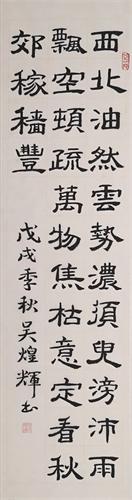 西北油然雲勢濃須臾滂沛雨
飄空頓疏萬物焦枯意定看秋
郊稼穡豐
戊戌季秋吳煌輝書